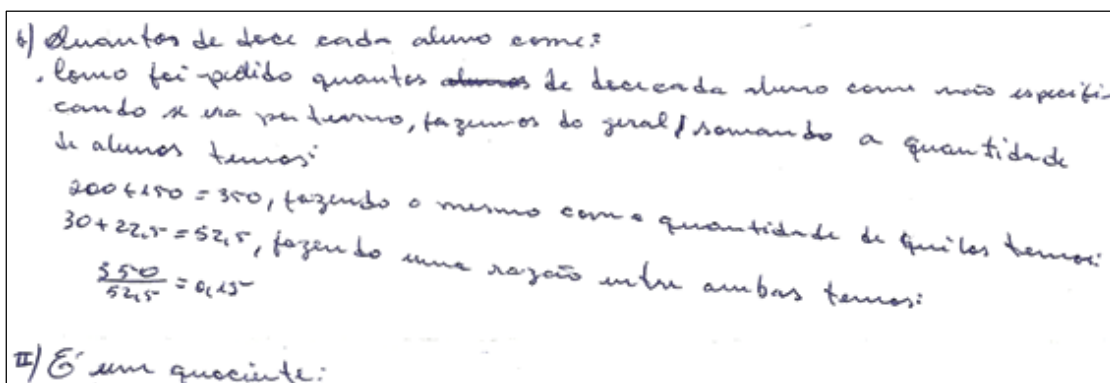 b) Quantos de doce cada aluno come?
. Como foi pedido quantos alunos de doce cada aluno come não especifi-
cando se era por turno, fazemos do geral, somando a quantidade
de alunos temos:
200+150 = 350, fazendo o mesmo com a quantidade de quilos temos:
30+22,5 = 52,5, fazendo uma razão entre ambas temos:
350/52,5 = 0,15
II) É um quociente: